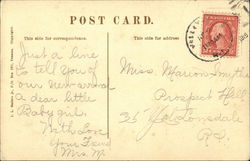 POST CARD.
This side for correspondence.
This side for address
Just a line
to tell you of
our new arrival
a dear little
Baby girl.
With Love
Your Friend
Mrs. M.
Miss. Marion Smythe
Prospect Hill
35 Lonsdale
R.I.